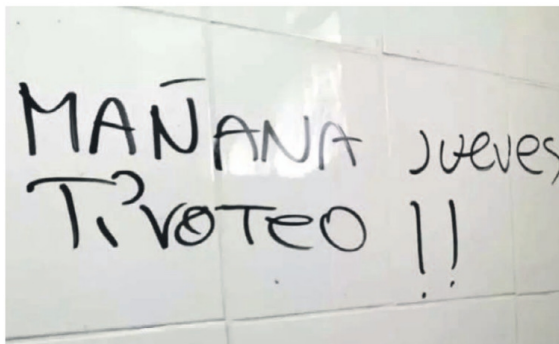 MAÑANA jueves
TiroTeo !!